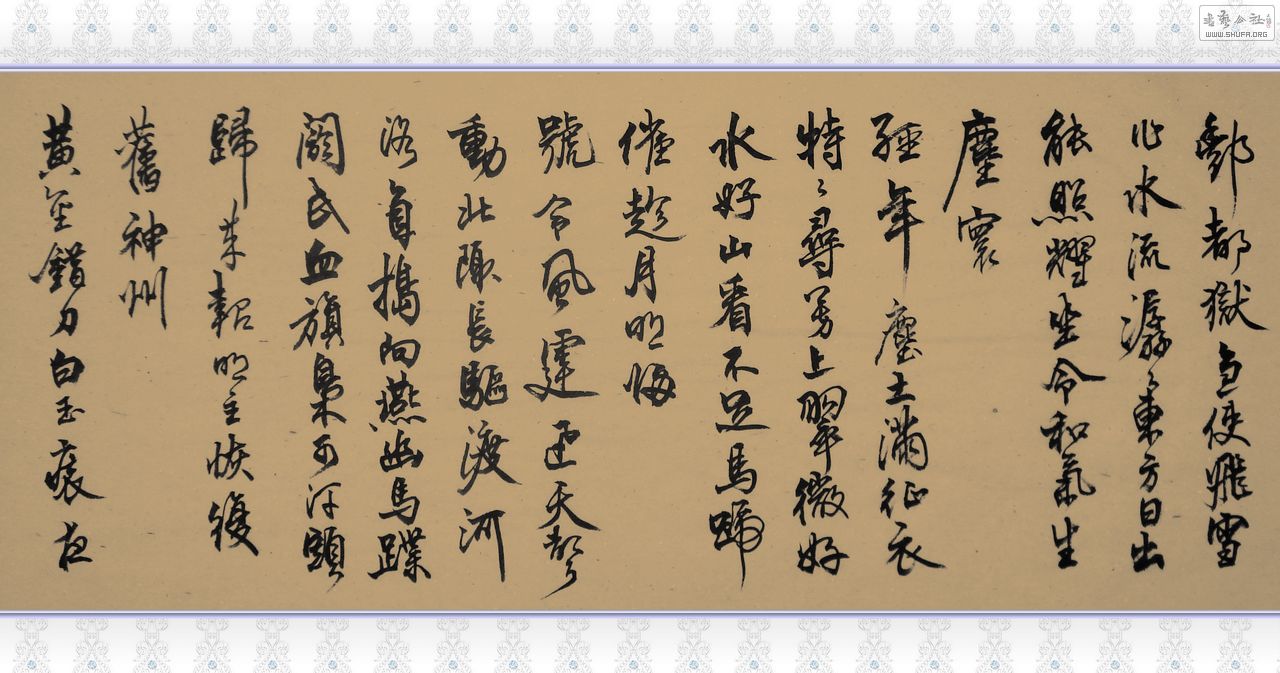 酆都獄急使飛雪
化水流潺〻東方日出
能照耀坐令和氣生
塵寰
經年塵土滿征衣
特〻尋芳上翠微好
水好山看不足馬蹄
催趁月明悔
號令風霆迅天聲
動北陬長驅渡河
洛直搗向燕幽馬蹀
閼氏血旗梟可汗頭
歸來報明主恢復
舊神州
黃金錯刀白玉裝夜
書藝公社
WWW.SHUFA.ORG